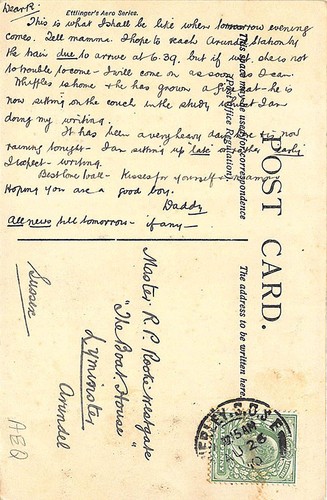 Dear R.
Ettlinger's Aero Series.
This is what I shall be like when tomorrow evening
comes. Tell mamma I hope to reach Arundel Station by
the train due to arrive at 6.39. but if wet she is not
to trouble to come - I will come on as soon as I can.
Whiffles is home & he has grown a fine cat - he is
now sitting on the couch in the study what I am
doing my writing.
It has been a very heavy day & is now
raining tonight - I am sitting up 'late' or rather early
I expect - writing.
Best love to all - Kisses for yourself & mamma
Hoping you are a good boy.
Daddy
All news till tomorrow - if any -
This space may be used for correspondence
(Post Office Regulation)
POST CARD.
The address to be written here.
Master R. P. Rooke Westgate
"The Boat House"
Lyminster
Arundel
Sussex
AEQ
S.O.